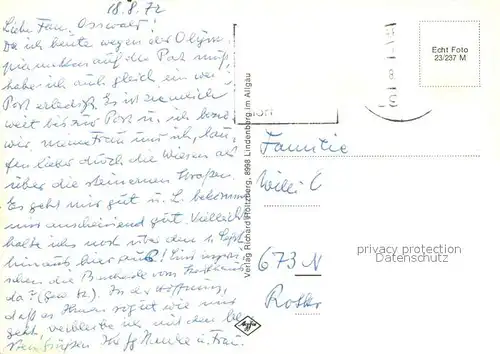 18.8.72
Liebe Fam. Osswald!
Da ich heute wegen der Olym-
piamarken auf die Post muß,
habe ich auch gleich ein wenig
Post erledigt. Es ist ziemlich
weit bis zur Post u. ich
wir, meine Frau und ich, lau-
fen lieber durch die Wiesen als
über die steinernen Straßen.
Es geht mir gut u. L. bekommt
mir anscheinend gut. Vielleicht
halte ich's noch über den 1. Sept.
hinaus hier aus!
schen die
da? In der Hoffnung,
daß es Ihnen so gut wie uns
geht, verbleibe ich mit den be-
sten Grüßen Ihr u. Frau.
Echt Foto
23/237 M
Verlag Richard Holtzberg, 8998 Lindenberg im Allgäu
Familie
Willi
673 N
privacy protection
Datenschutz